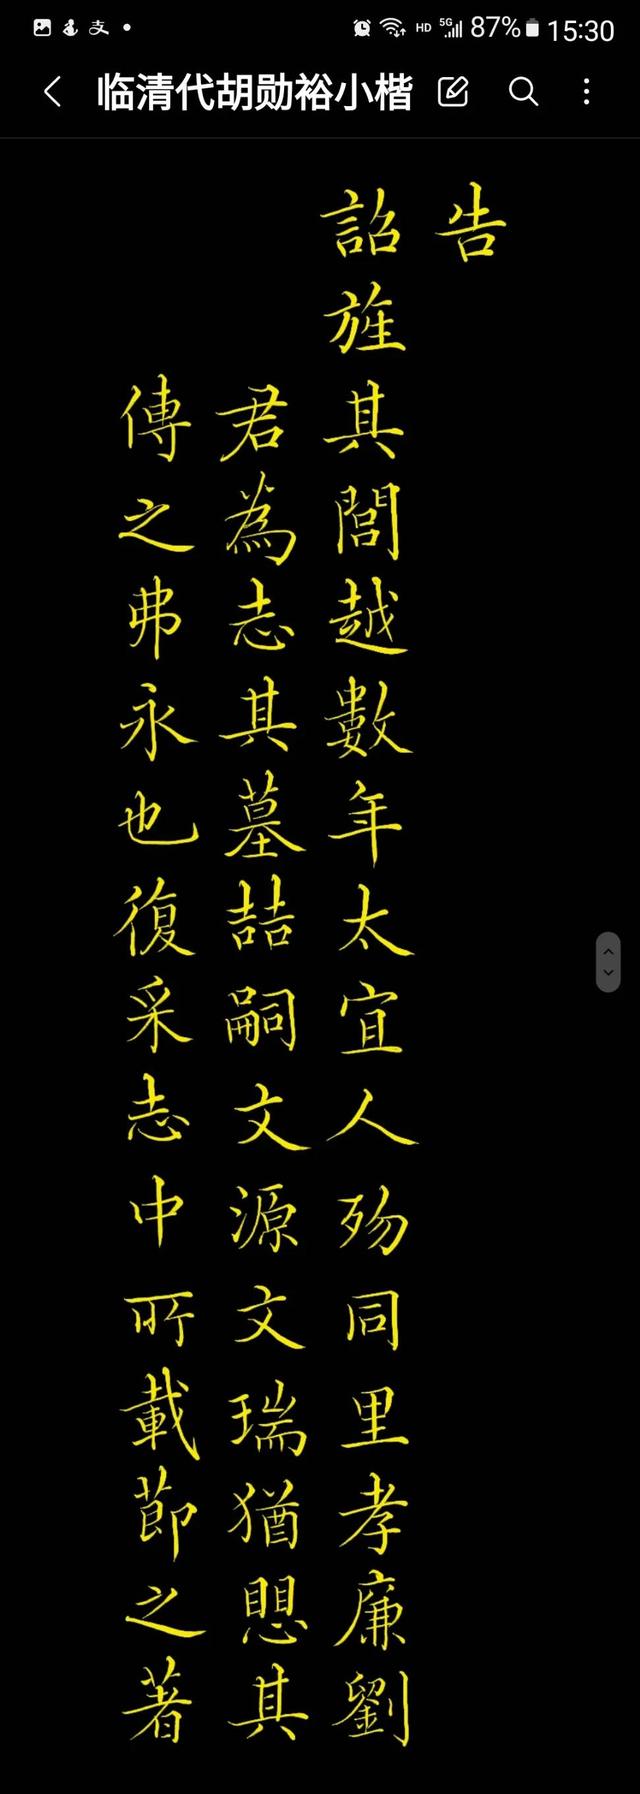 HD 5G 87% 15:30
临清代胡勋裕小楷
告
詔旌其閭越數年太宜人殁同里孝廉劉
君為志其墓喆嗣文源文瑞猶思其
傳之弗永也復采志中所載節之著